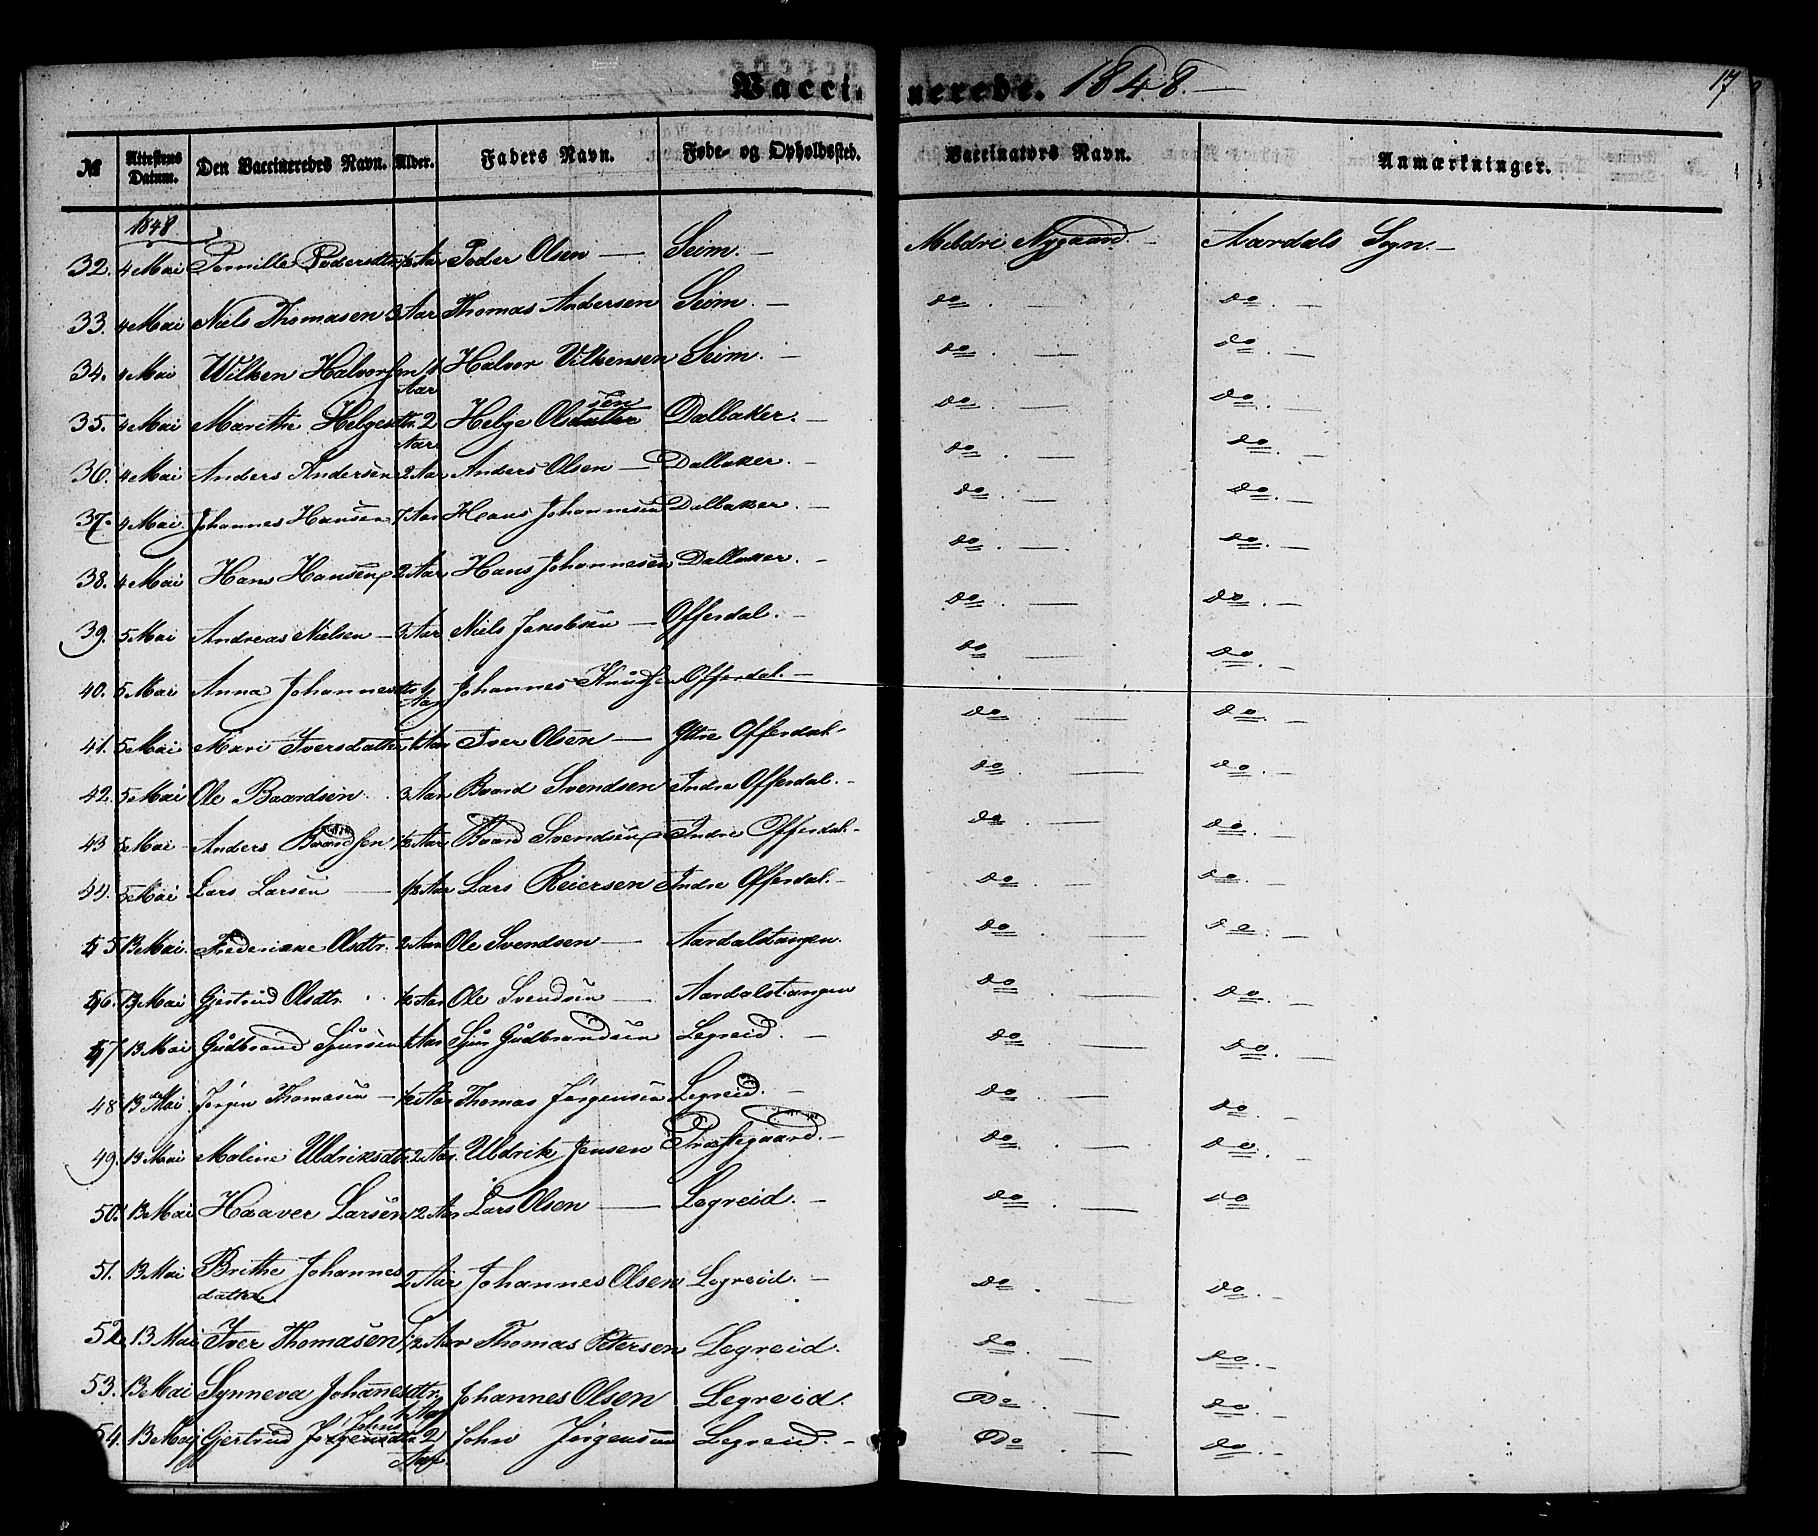 Vaccinerede. 1848.— 17
№ | Attestens Datum. | Den Vaccineredes Navn. | Alder. | Faders Navn. | Føde- og Opholdssted. | Vaccinators Navn. | Anmærkninger.
1848
32. 4 Mai Pernille Pedersdtr ½ Aar Peder Olsen — Seim. — Meldri Nygaard. — Aardals Sogn. —
33. 4 Mai Niels Thomasen 3 Aar Thomas Andersen Seim. — do. — do. —
34. 4 Mai Wilken Halvorsen 4 Aar Halvor Vilkensen Seim. — do. — do. —
35. 4 Mai Marithe Helgesdtr. 2 Aar Helge Olsdatter sen Dallaker. — do. — do. —
36. 4 Mai Anders Andersen 2 Aar Anders Olsen — Dallaker. — do. — do. —
37. 4 Mai. Johannes Hansen 7 Aar Hans Johannesen Dallaker. — do. — do. —
38. 4 Mai Hans Hansen 2 Aar Hans Johannesen Dallaker. — do. — do. —
39. 5 Mai Andreas Nielsen — 3 Aar Niels Jakobsen — Offerdal. — do. — do. —
40. 5 Mai Anna Johannesdtr Aar Johannes Knudsen Offerdal. — do do. —
41. 5 Mai Mari Iversdatter 1 Aar Iver Olsen — Yttre Offerdal. do. — do. —
42. 5 Mai Ole Baardsen. 3 Aar Baard Svendsen Indre Offerdal. — do. — do. —
43 5 Mai Anders Baardsen ½ Aar Baard Svendsen Indre Offerdal. — do. — do. —
44. 5 Mai Lars Larsen — ½ Aar Lars Reiersen Indre Offerdal. — do. — do. —
45 13 Mai. Frederikke Olsdtr. 2 Aar Ole Svendsen — Aardalstangen. do. — do. —
46. 13 Mai Gjertrud Olsdtr. ½ Aar Ole Svendsen — Aardalstangen do. — do. —
47 13 Mai Gudbrand Sjursen 1 Aar Sjur Gudbrandsen Legreid. — do. — do. —
48 13de Mai Jørgen Thomasen — ½ Aar Thomas Jørgensen Legreid. — do. — do. —
49. 13 Mai Maline Uldriksdtr. 2 Aar. Uldrik Jensen Præstegaard. — do. — do. —
50. 13 Mai Haaver Larsen 2 Aar Lars Olsen — Legreid. — do. — do
51. 13 Mai Brithe Johannesdatter 2 Aar Johannes Olsen Legreid. — do. — do. —
52. 13 Mai Iver Thomasen ½ Aar Thomas Petersen Legreid. do. — do. —
53. 13 Mai Synneva Johanesdtr. Aar Johannes Olsen Legreid. Do. — do. —
54. 13 Mai Gjertrud Jørgensdtr Johns 2 Aar. John Jørgensen Legreid. — Do. — do. —